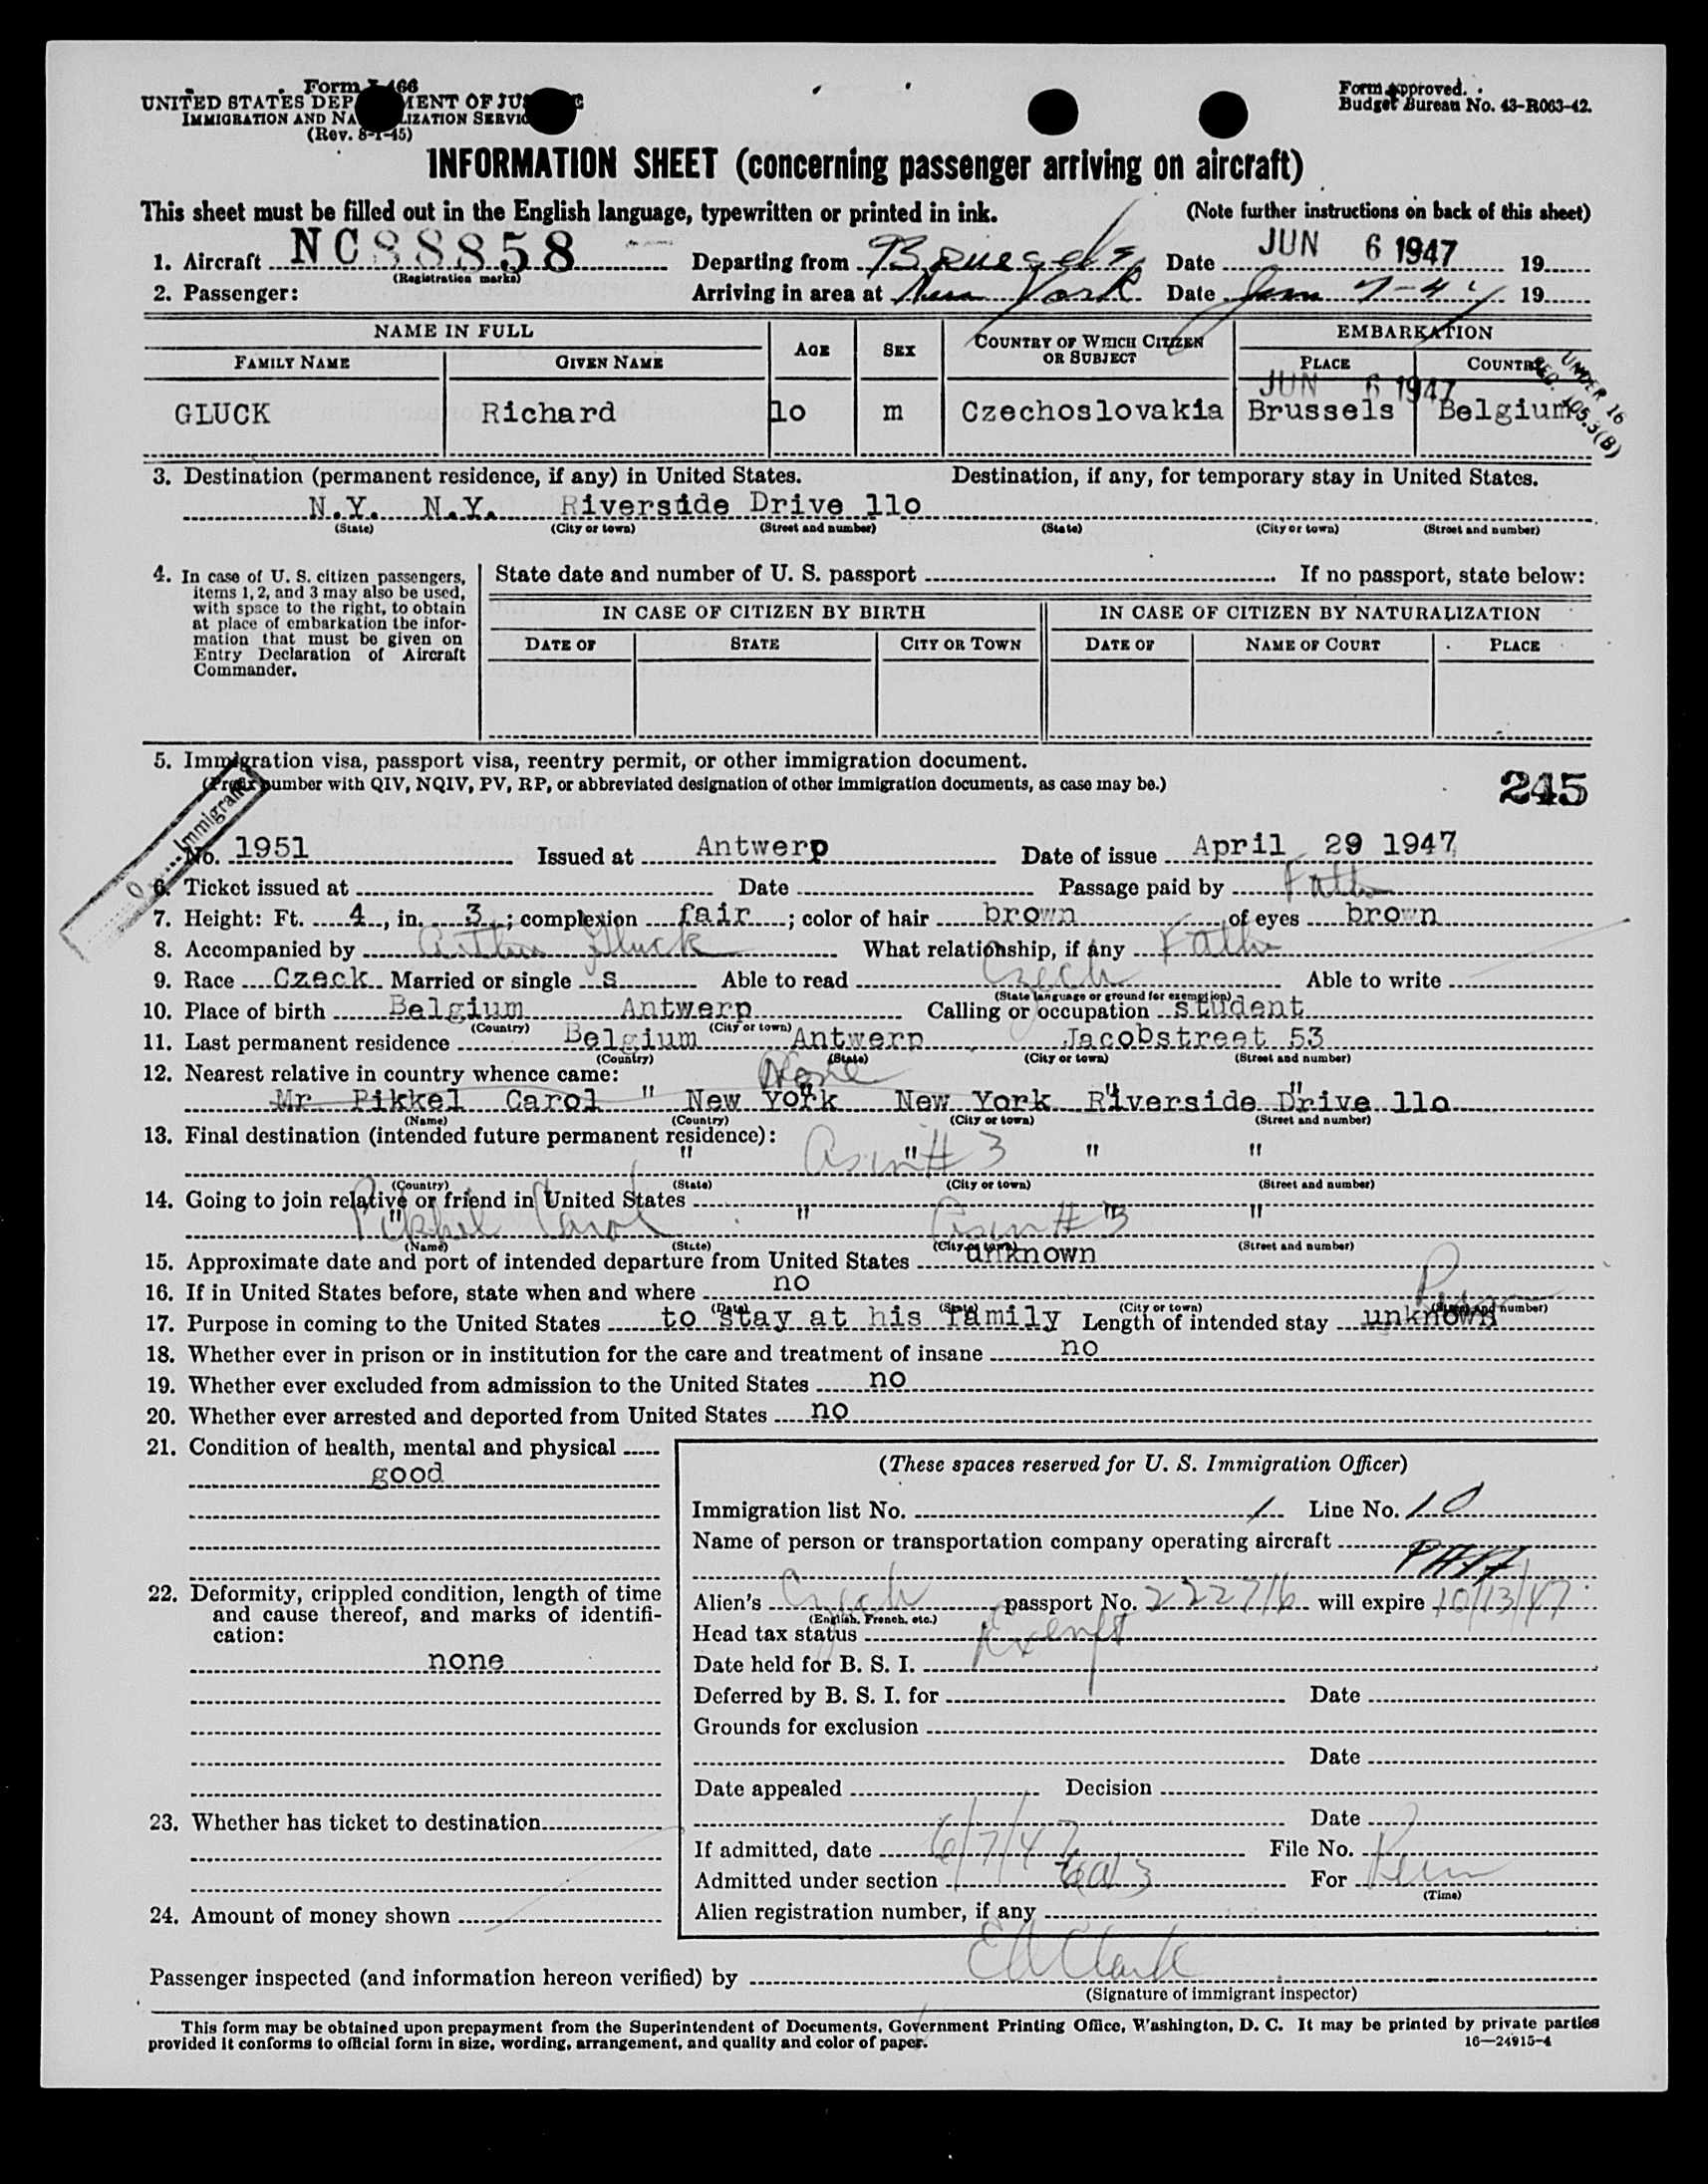 Form I-466
UNITED STATES DEPARTMENT OF JUSTICE
IMMIGRATION AND NATURALIZATION SERVICE
(Rev. 8-1-45)
Form approved.
Budget Bureau No. 43-R063-42.
INFORMATION SHEET (concerning passenger arriving on aircraft)
This sheet must be filled out in the English language, typewritten or printed in ink. (Note further instructions on back of this sheet)
1. Aircraft NC88858 Departing from Brussels Date JUN 6 1947 19
(Registration marks)
2. Passenger: Arriving in area at New York Date 7-47 19
NAME IN FULL AGE SEX COUNTRY OF WHICH CITIZEN OR SUBJECT EMBARKATION
FAMILY NAME GIVEN NAME PLACE COUNTRY
JUN 6 1947
UNDER 16
SEC. 105.3(B)
GLUCK Richard 1o m Czechoslovakia Brussels Belgium
3. Destination (permanent residence, if any) in United States. Destination, if any, for temporary stay in United States.
N.Y. N.Y. Riverside Drive 11o
(State) (City or town) (Street and number) (State) (City or town) (Street and number)
4. In case of U. S. citizen passengers, items 1, 2, and 3 may also be used, with space to the right, to obtain at place of embarkation the information that must be given on Entry Declaration of Aircraft Commander.
State date and number of U. S. passport If no passport, state below:
IN CASE OF CITIZEN BY BIRTH IN CASE OF CITIZEN BY NATURALIZATION
DATE OF STATE CITY OR TOWN DATE OF NAME OF COURT PLACE
5. Immigration visa, passport visa, reentry permit, or other immigration document.
(Prefix number with QIV, NQIV, PV, RP, or abbreviated designation of other immigration documents, as case may be.)
245
Immigrant
No. 1951 Issued at Antwerp Date of issue April 29 1947
6. Ticket issued at Date Passage paid by Father
7. Height: Ft. 4, in. 3; complexion fair; color of hair brown of eyes brown
8. Accompanied by Arthur Gluck What relationship, if any Father
9. Race Czeck Married or single s Able to read Czech Able to write
(State language or ground for exemption)
10. Place of birth Belgium Antwerp Calling or occupation student
(Country) (City or town)
11. Last permanent residence Belgium Antwerp Jacobstreet 53
(Country) (State) (City or town) (Street and number)
12. Nearest relative in country whence came: None
Mr Pikkel Carol " New York New York Riverside Drive 11o
(Name) (Country) (City or town) (Street and number)
13. Final destination (intended future permanent residence):
" " As in # 3 " "
(Country) (State) (City or town) (Street and number)
14. Going to join relative or friend in United States
" Pikkel Carol " As in # 3 " "
(Name) (State) (City or town) (Street and number)
15. Approximate date and port of intended departure from United States unknown
16. If in United States before, state when and where no
(Date) (State) (City or town) (Street and number)
17. Purpose in coming to the United States to stay at his family Length of intended stay unknown
18. Whether ever in prison or in institution for the care and treatment of insane no
19. Whether ever excluded from admission to the United States no
20. Whether ever arrested and deported from United States no
21. Condition of health, mental and physical
good
22. Deformity, crippled condition, length of time and cause thereof, and marks of identification:
none
23. Whether has ticket to destination
24. Amount of money shown
(These spaces reserved for U. S. Immigration Officer)
Immigration list No. 1 Line No. 10
Name of person or transportation company operating aircraft
PAA
Alien's Czech passport No. 222716 will expire 10/13/47
(English, French, etc.)
Head tax status Exempt
Date held for B. S. I.
Deferred by B. S. I. for Date
Grounds for exclusion
Date
Date appealed Decision
Date
If admitted, date 6/7/47 File No.
Admitted under section 6a3 For Perm
(Time)
Alien registration number, if any
Passenger inspected (and information hereon verified) by E A Clark
(Signature of immigrant inspector)
This form may be obtained upon prepayment from the Superintendent of Documents, Government Printing Office, Washington, D. C. It may be printed by private parties
provided it conforms to official form in size, wording, arrangement, and quality and color of paper.
16—24915-4